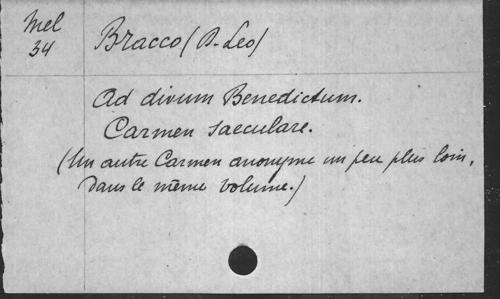 Mel
34
Bracco (D. Leo)
Ad divum Benedictum.
Carmen saeculare.
(Un autre Carmen anonyme un peu plus loin,
dans le même volume.)